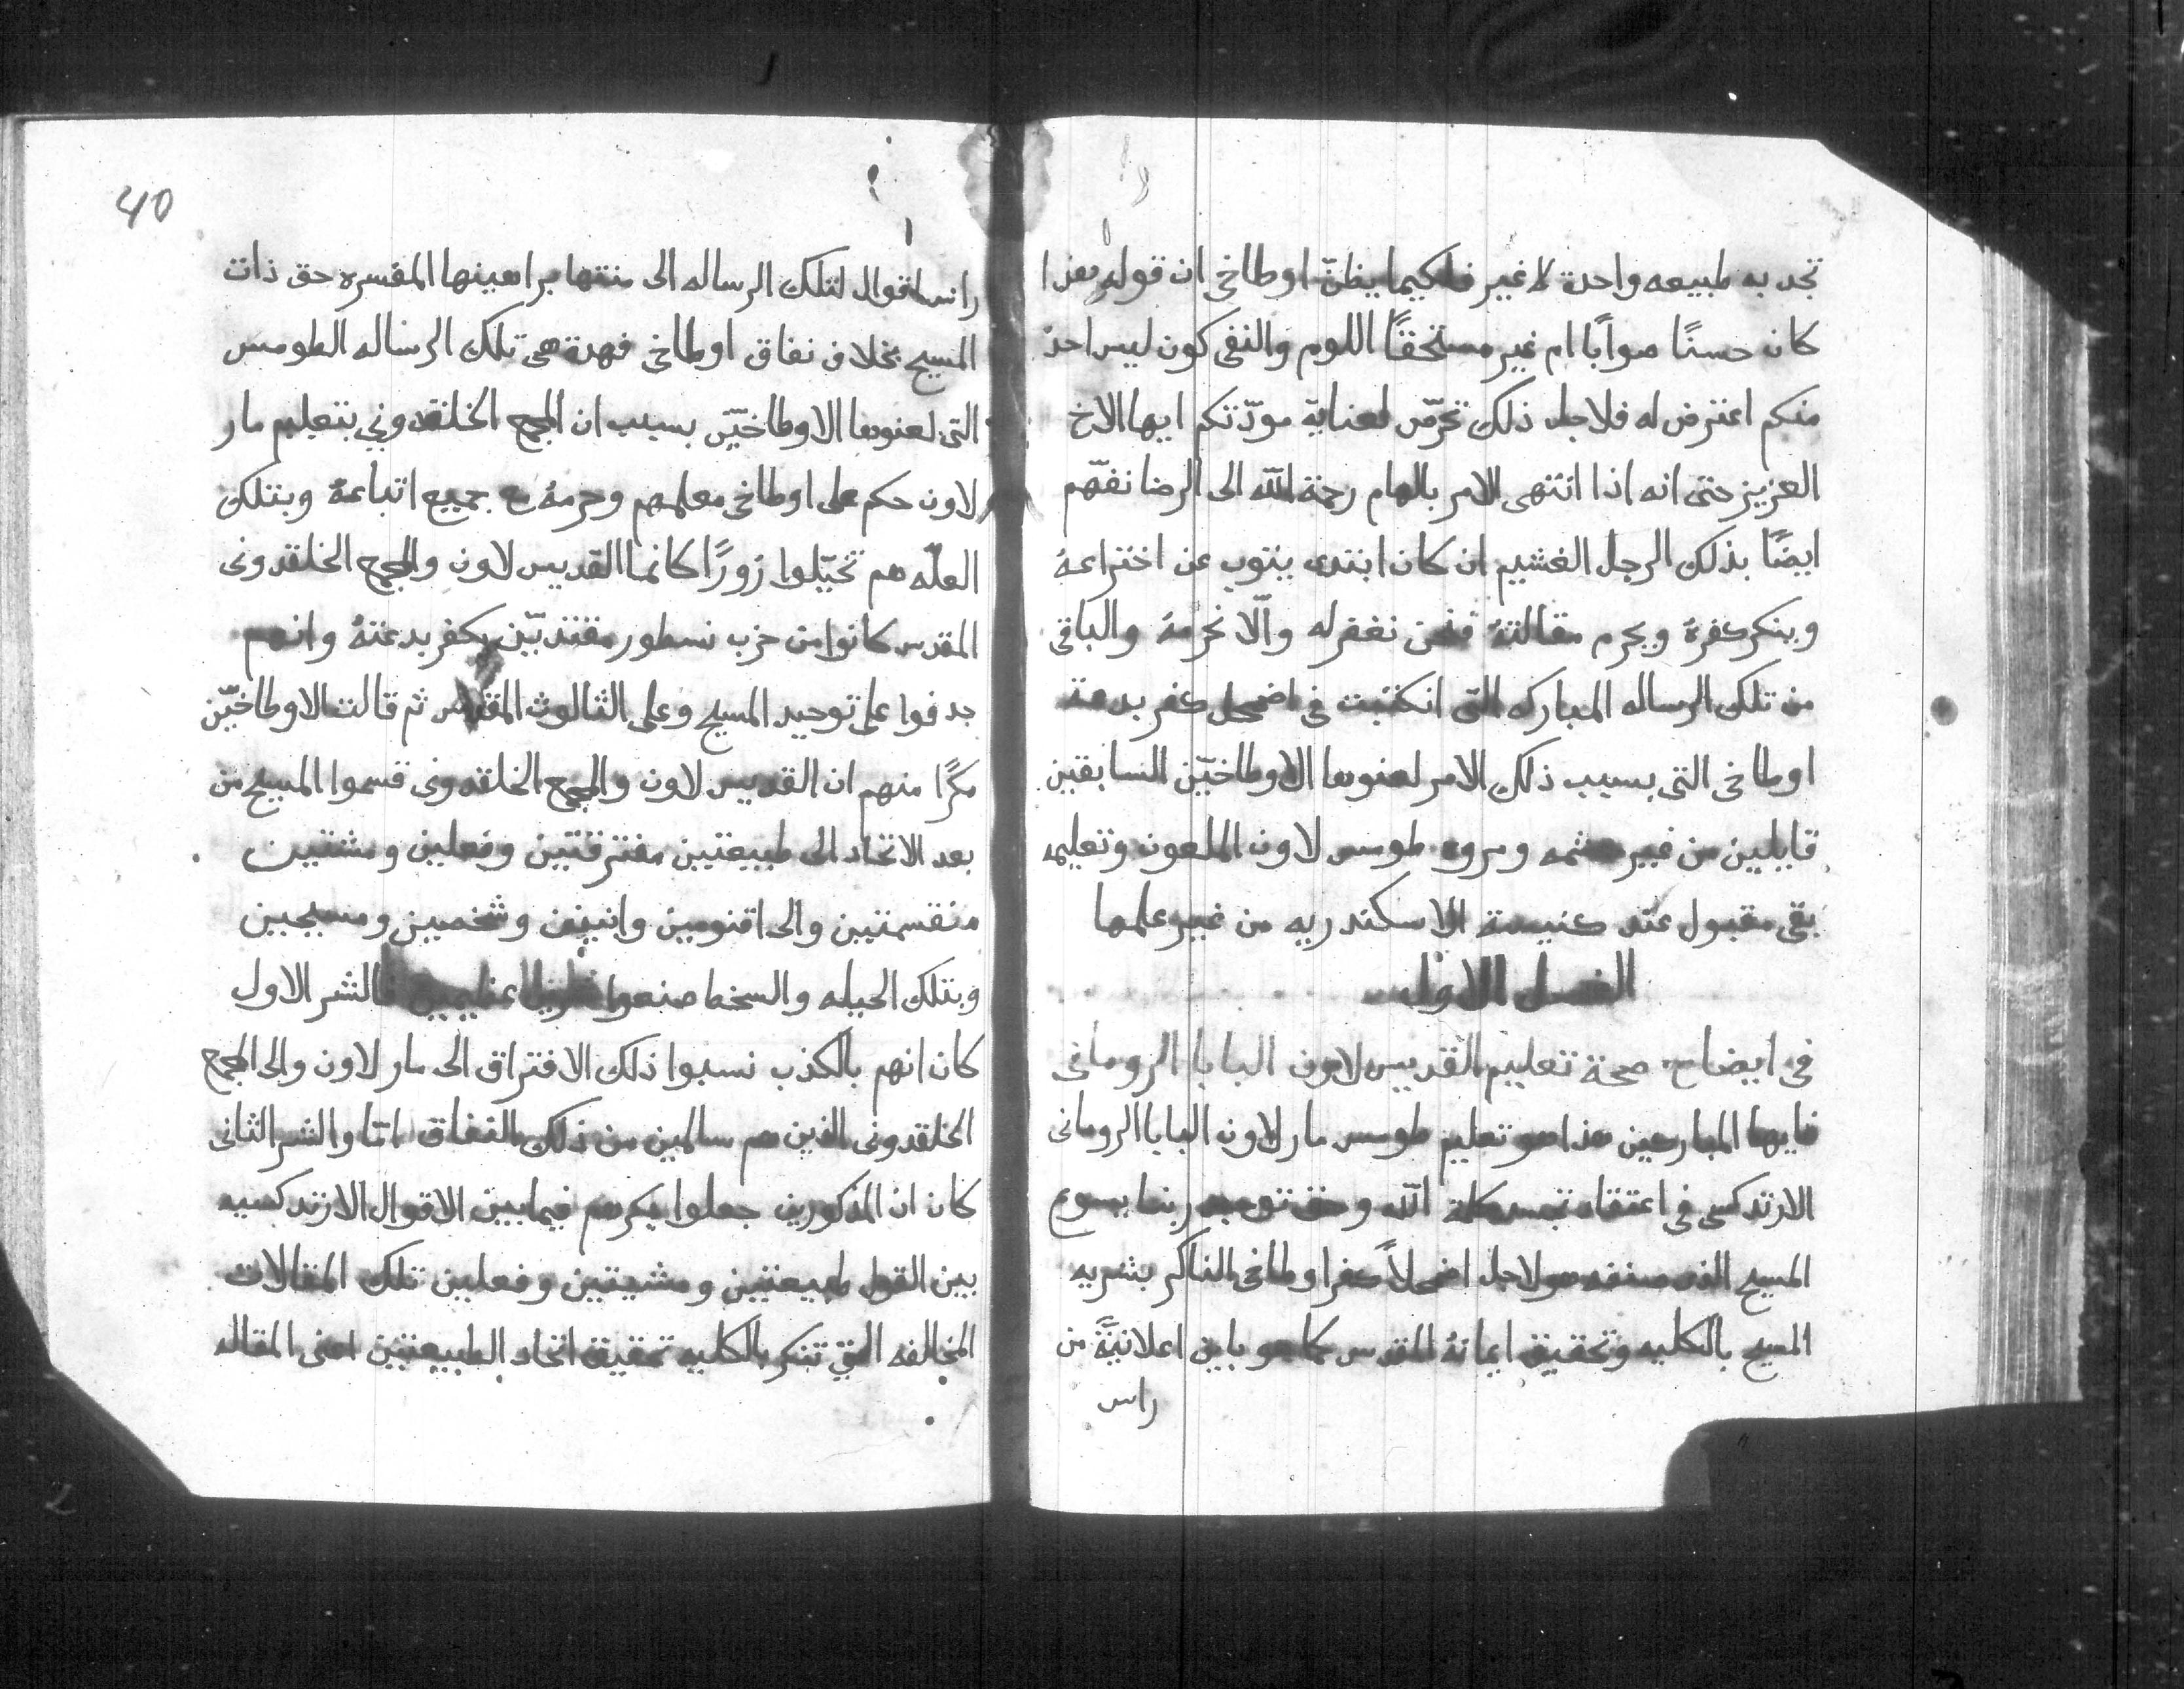 تجد به طبيعه واحدة لا غير فلكيما يظنّ اوطاخي ان قوله هذا
كان حسنًا صوابًا ام غير مستحقًا اللوم والنفى كون ليس احدٌ
منكم اعترض له فلاجل ذلك نحرّص لعناية مودّتكم ايها الاخ
العزيز حتى انه اذا انتهى الامر بالهام رحمة الله الى الرضا نفهّم
ايضًا بذلك الرجل الغشيم ان كان ابتدى يتوب عن اختراعهُ
وينكر كفرهُ ويحرم مقالتهُ فنحن نغفر له والّا نحرمهُ والباقى
من تلك الرساله المباركه التى انكتبت فى اضمحل كفر بدعة
اوطاخى التى بسبب ذلك الامر لعنوها الاوطاخيّين السابقين
قايلين من غير حشمه ومروه طومس لاون الملعون وتعليمه
بقى مقبول عند كنيسة الاسكندريه من غير علمها
الفصل الاول
فى ايضاح صحة تعليم القديس لاون البابا الرومانى
فايها المباركين هذا هو تعليم طومس مار لاون البابا الرومانى
الارتدكسى فى اعتقاد تجسد كلمة الله وحق توحيد ربنا يسوع
المسيح الذى صنفه هو لاجل اضمحلاً كفر اوطاخى الناكر بشريه
المسيح بالكليه وتحقيق ايمانهُ المقدس كما هو باين اعلانيةً من
راس
راس اقوال لتلك الرساله الى منتها براهينها المفسره حق ذات
المسيح بخلاف نفاق اوطاخى فهدة هى تلك الرساله الطومس
التى لعنوها الاوطاخيّين بسبب ان المجمع الخلقدونى بتعليم مار
لاون حكم على اوطاخى معلمهم وحرمهُ مع جميع اتباعهُ وبتلك
العلّه هم تخيّلوا زورًا كانما القديس لاون والمجمع الخلقدونى
المقدس كانوا من حزب نسطور مقتدبّين بكفر بدعتهُ وانهم
جدفوا على توحيد المسيح وعلى الثالوث المقدس ثم قالت الاوطاخيّين
مكرًا منهم ان القديس لاون والمجمع الخلقدونى قسموا المسيح من
بعد الاتحاد الى طبيعتين مفترقتين وفعلين ومشتيين
منقسمتين والى اقنومين واثنين وشخصين ومسيحين
وبتلك الحيله والسخط صنعوا عظيمين فالشر الاول
كان انهم بالكذب نسبوا ذلك الافتراق الى مار لاون والى المجمع
الخلقدونى الذين هم سالمين من ذلك النفاق امّا والشر الثانى
كان ان المذكورين جعلوا بكرهم فيما بين الاقوال الارتدكسيه
بين القول طبيعتين ومشيتين وفعلين تلك المقالات
المخالفه التى تنكر بالكليه تحقيق اتحاد الطبيعتين اعنى المقاله
40